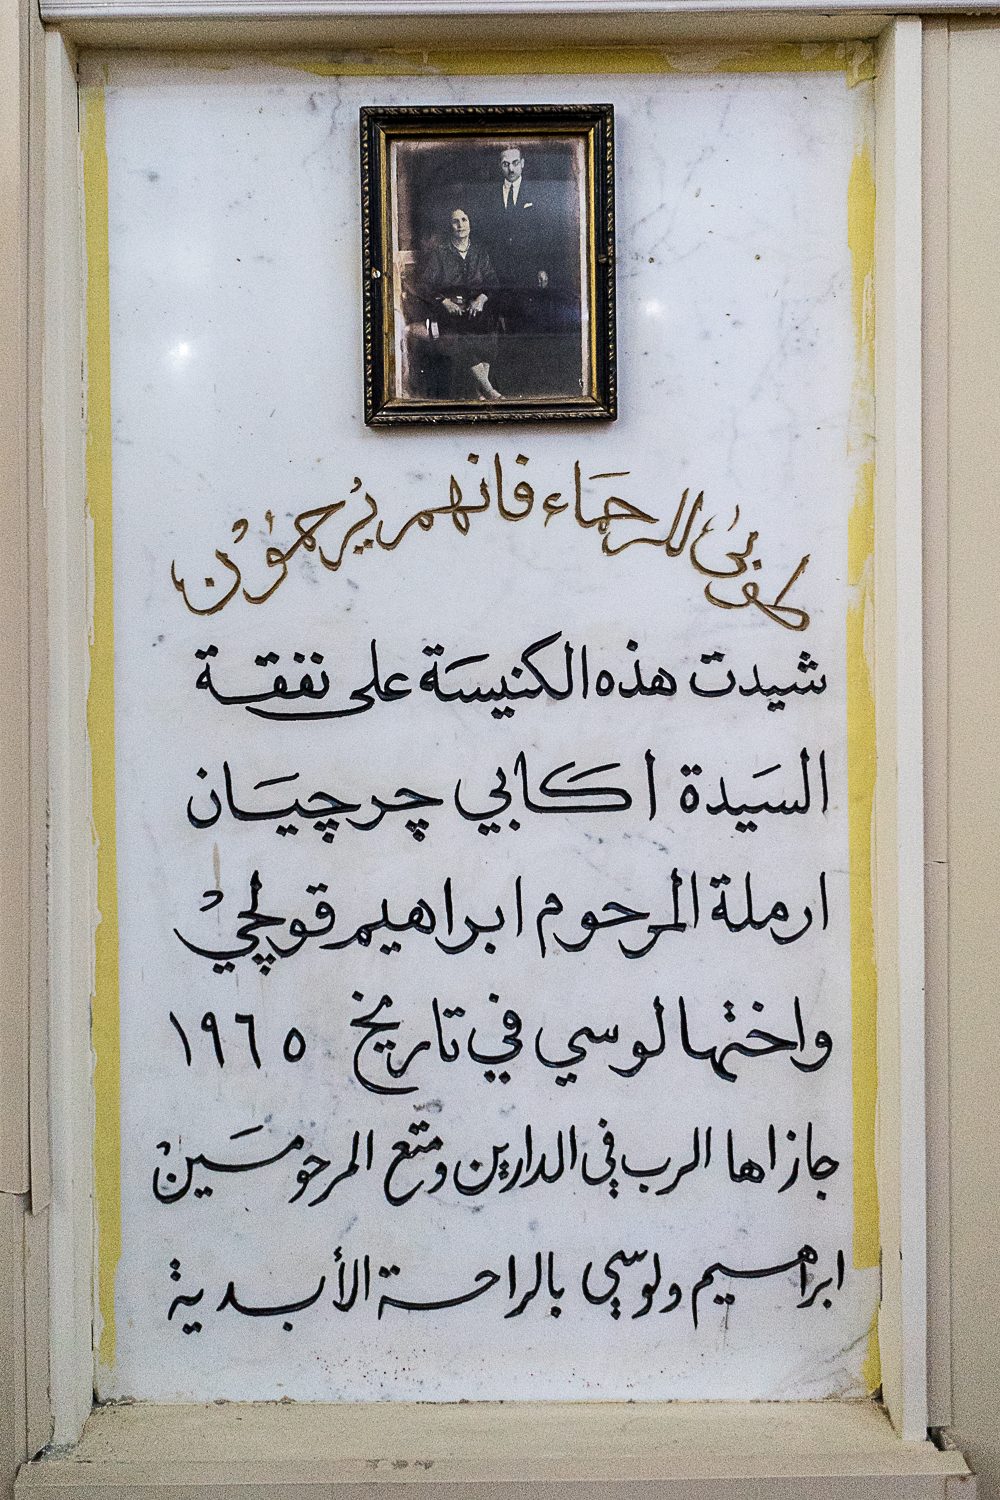 طوبى للرحماء فانهم يُرحمون
شيدت هذه الكنيسة على نفقة
السيدة اكابي چرچيان
ارملة المرحوم ابراهيم قولچي
واختها لوسي في تاريخ ١٩٦٥
جازاها الرب في الدارين ومتع المرحومين
ابراهيم ولوسي بالراحة الأبدية